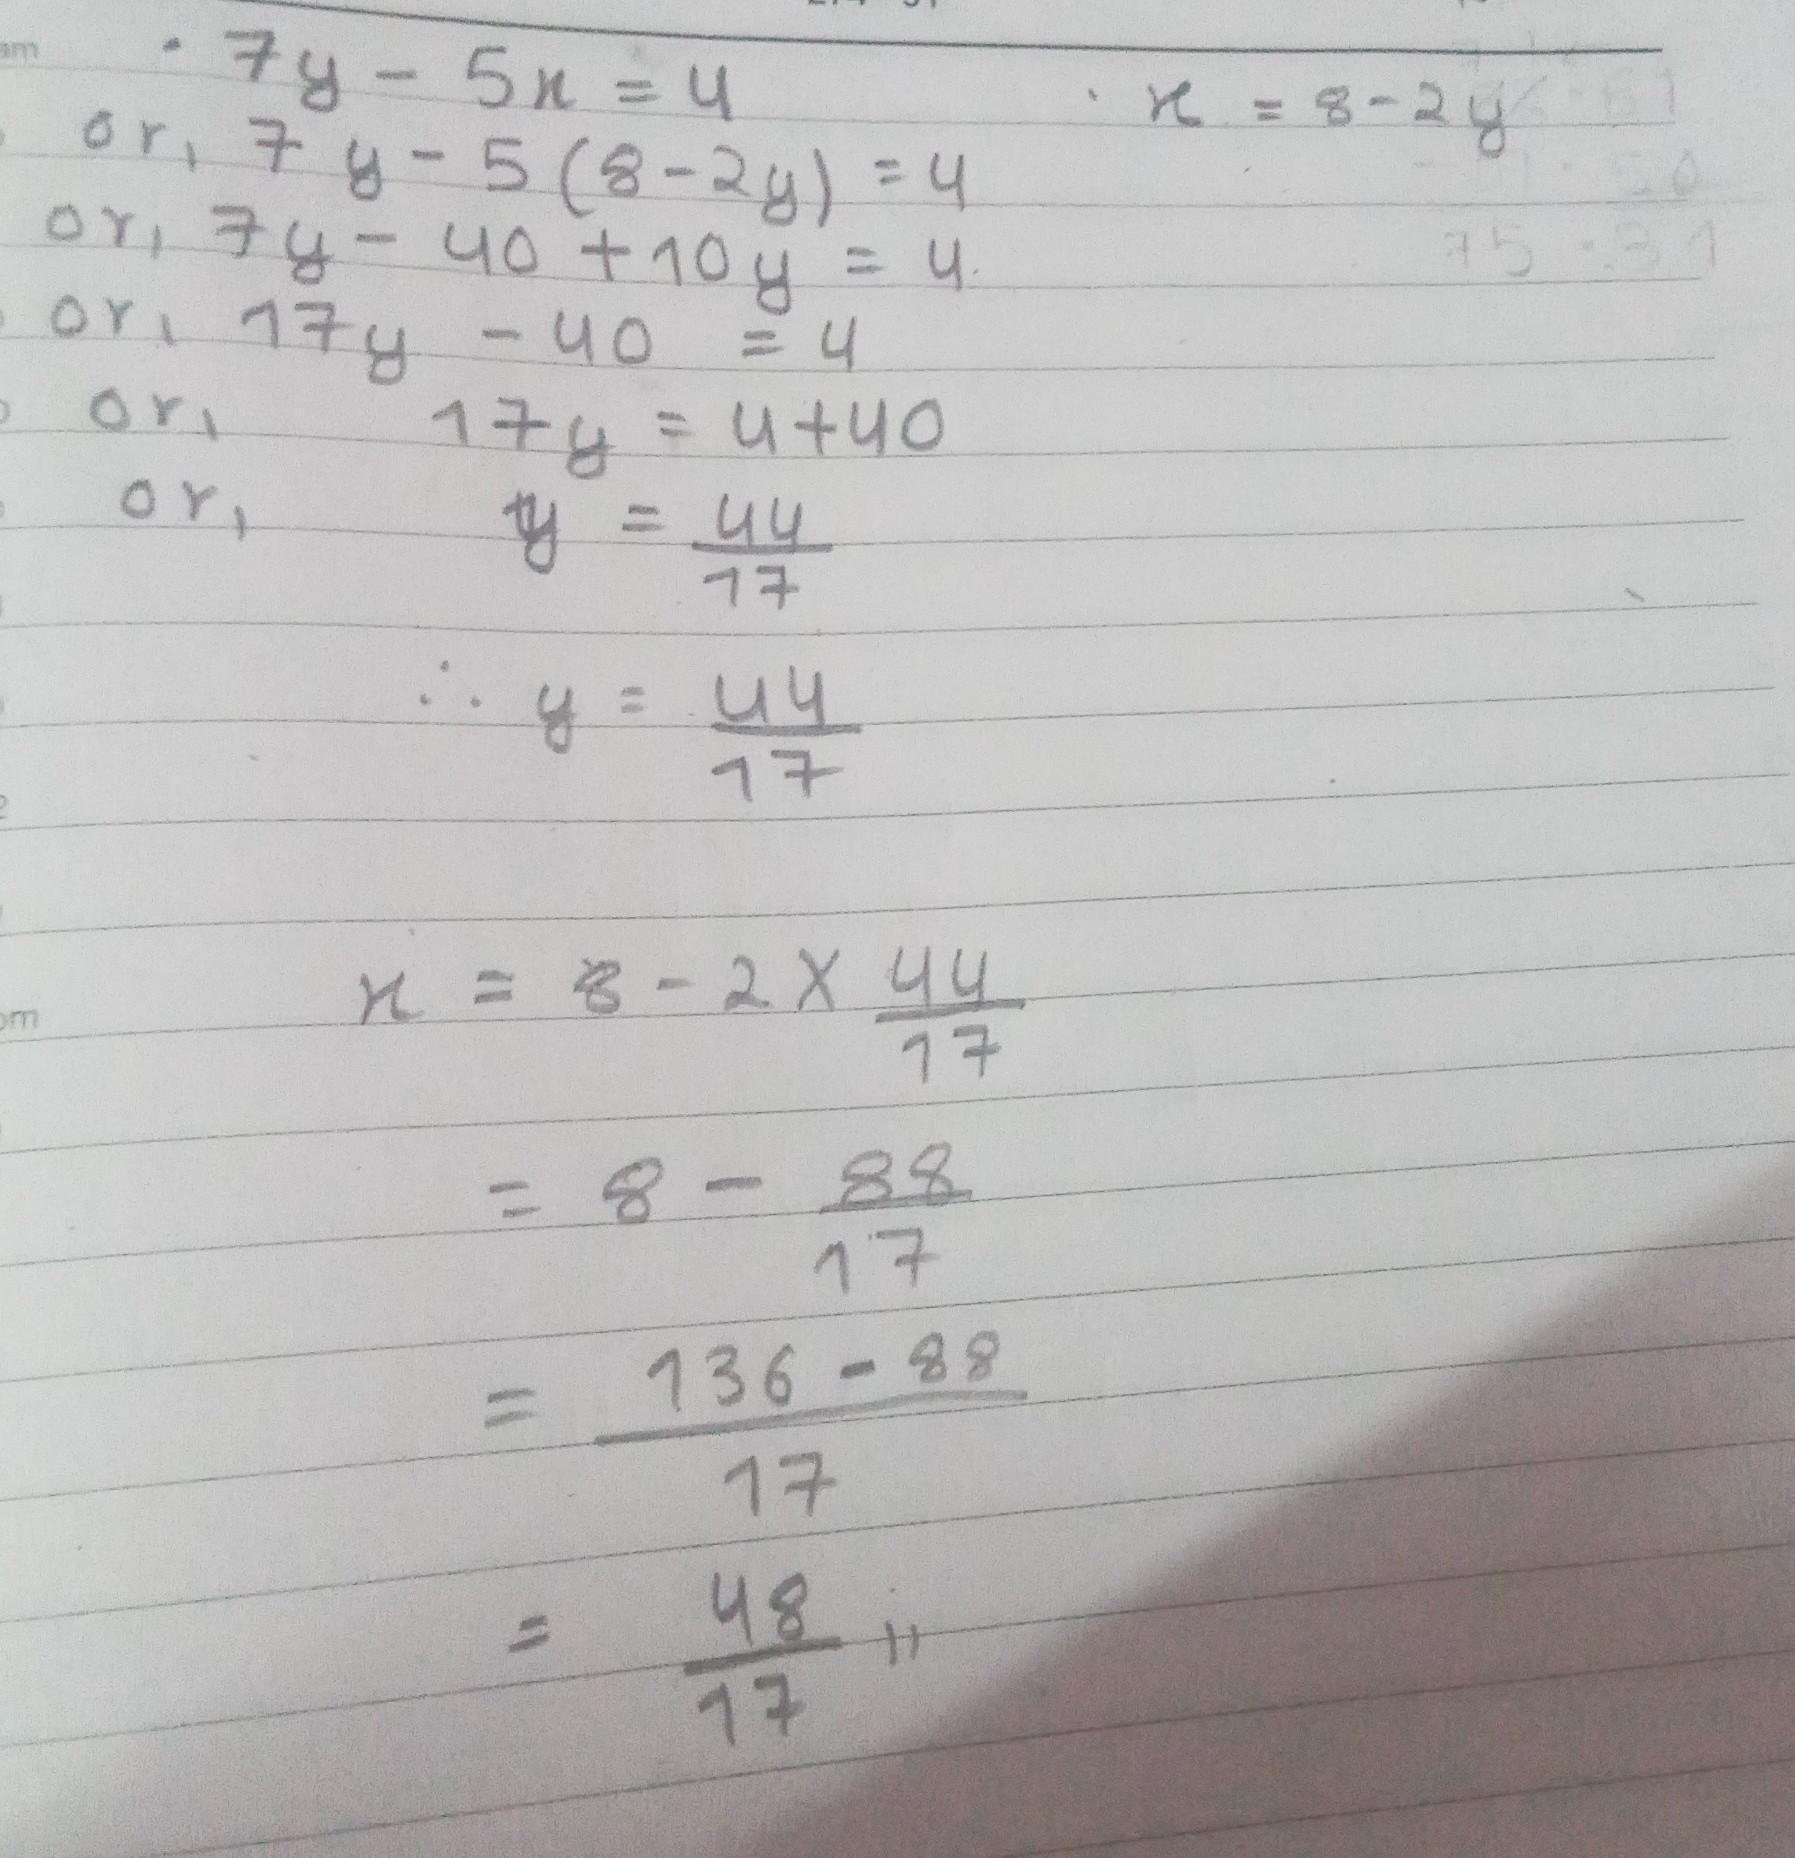 · 7y - 5x = 4 · x = 8 - 2y
or, 7y - 5(8 - 2y) = 4
or, 7y - 40 + 10y = 4
or, 17y - 40 = 4
or, 17y = 4 + 40
or, y = 44/17
∴ y = 44/17
x = 8 - 2 × 44/17
= 8 - 88/17
= 136 - 88/17
= 48/17 ,,